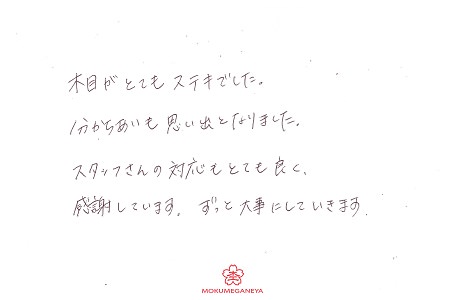 木目がとてもステキでした。
分かちあいも思い出となりました。
スタッフさんの対応もとても良く、
感謝しています。ずっと大事にしていきます。
MOKUMEGANEYA